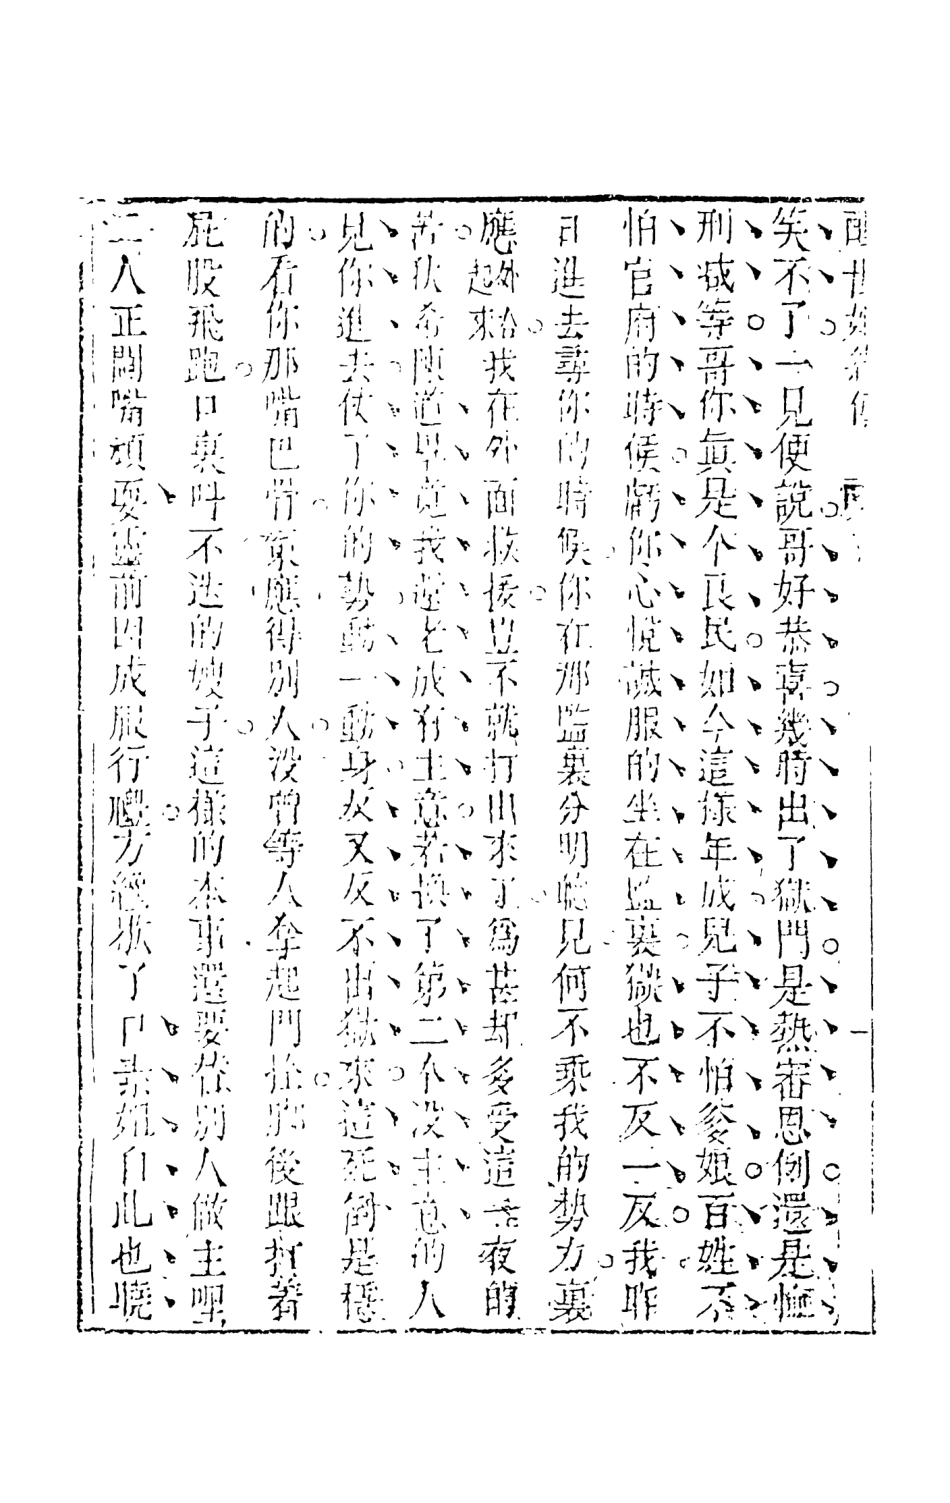 醒世姻緣傳
笑不了一見便說哥好恭喜幾時出了獄門是熱審恩例還是恤
刑減等哥你眞是个良民如今這樣年成兒子不怕爹娘百姓不
怕官府的時候虧你心悅誠服的坐在監裏獄也不反一反我昨
日進去尋你的時候你在那監裏分明聽見何不乘我的勢力裏
應外合我在外面救援豈不就打出來了爲甚却多受這一夜的
起來
苦狄希陳道早竟我還老成有主意若換了第二个没主意的人
見你進去仗了你的勢動一動身反又反不出獄來這死倒是穩
的看你那嘴巴骨策應得别人没曾等人拿起門拴脚後跟打着
屁股飛跑口裏叫不迭的嫂子這樣的本事還要替别人做主哩
二人正鬭嘴頑耍靈前四成服行禮方纔歇了口素姐自此也曉